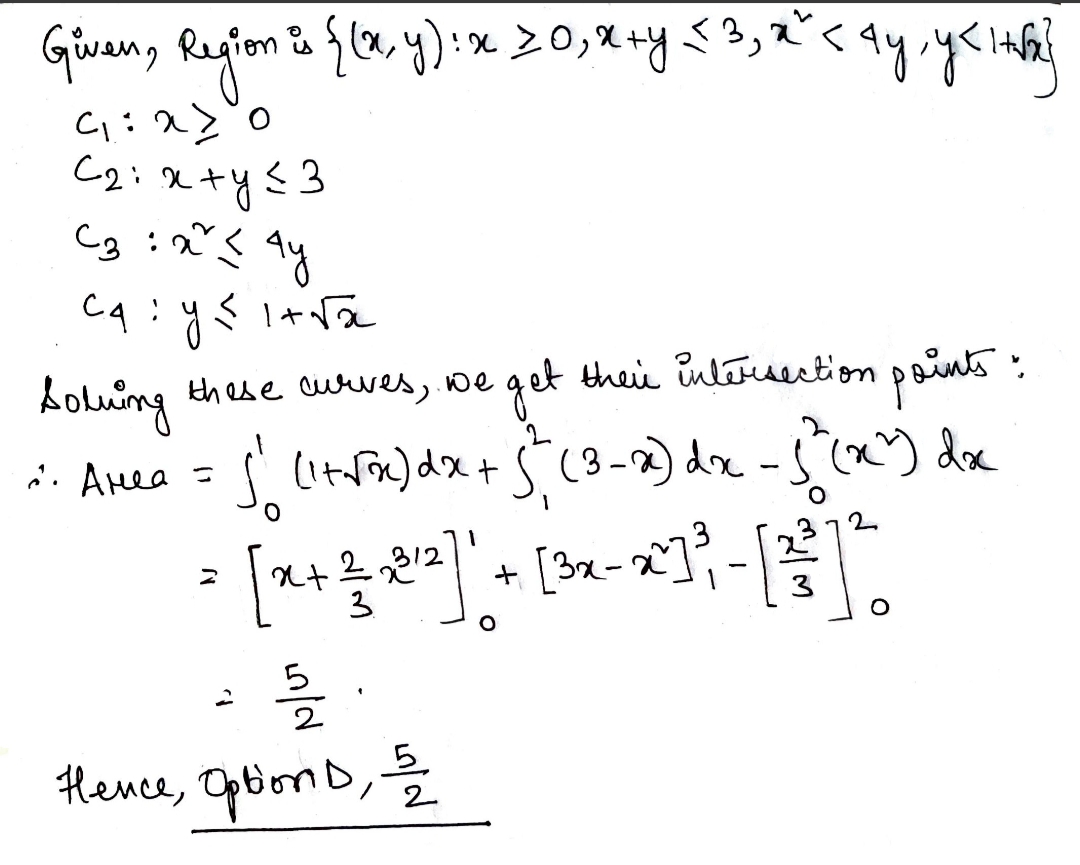 Given, Region is {(x, y) : x ≥ 0, x + y ≤ 3, x² < 4y, y < 1+√x}
C₁ : x ≥ 0
C₂ : x + y ≤ 3
C₃ : x² ≤ 4y
C₄ : y ≤ 1+√x
Solving these curves, we get their intersection points :
∴ Area = ∫₀¹ (1+√x) dx + ∫₁² (3-x) dx - ∫₀² (x²) dx
= [x + 2/3 x^{3/2}]₀¹ + [3x - x²]₁³ - [x³/3]₀²
= 5/2 .
Hence, Option D, 5/2